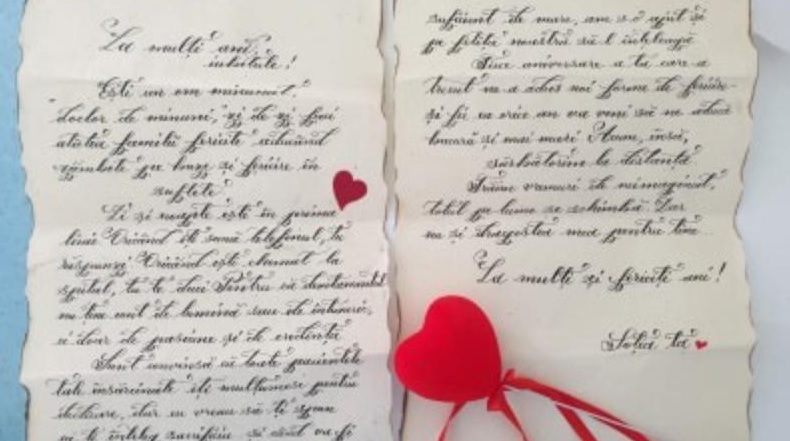 La mulți ani,
iubitule!
Ești un om minunat,
doctor de minuni, zi de zi faci
atâtea familii fericite aducând
zâmbete pe buze și fericire în
suflete
Zi și noapte ești în prima
linie Oricând îți sună telefonul, tu
răspunzi Oricând ești chemat la
spital, tu te duci Pentru că devotamentul
nu ține cont de lumină sau de întuneric,
ci doar de pasiune și de credință
Sunt convinsă că toate pacientele
tale însărcinate îți mulțumesc pentru
dedicare, dar eu vreau să îți spun
că te înțeleg și când va fi
suficient de mare, am s-o ajut și
pe fetița noastră să te înțeleagă
aniversare a ta care a
trecut ne-a adus noi forme de fericire
și fie ca orice an va veni să ne aducă
bucurii și mai mari Acum, însă,
sărbătorim la distanță
Trăim vremuri de neimaginat,
totul pe lume se schimbă Dar
nu și dragostea mea pentru tine
La mulți și fericiți ani!
Soția ta